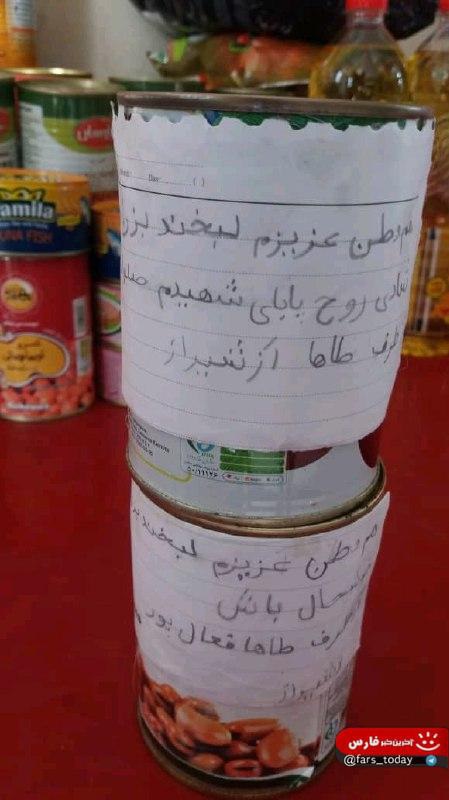 Date: ( )
هم وطن عزیزم لبخند بزن
شادی روح بابای شهیدم
طرف طاها از شیراز
۵۰/۱۱۱۲۶
هم وطن عزیزم لبخند
خوشحال باش
طرف طاها فعال پور
شیراز
amila
TUNA FISH
آخرین خبر فارس
@fars_today